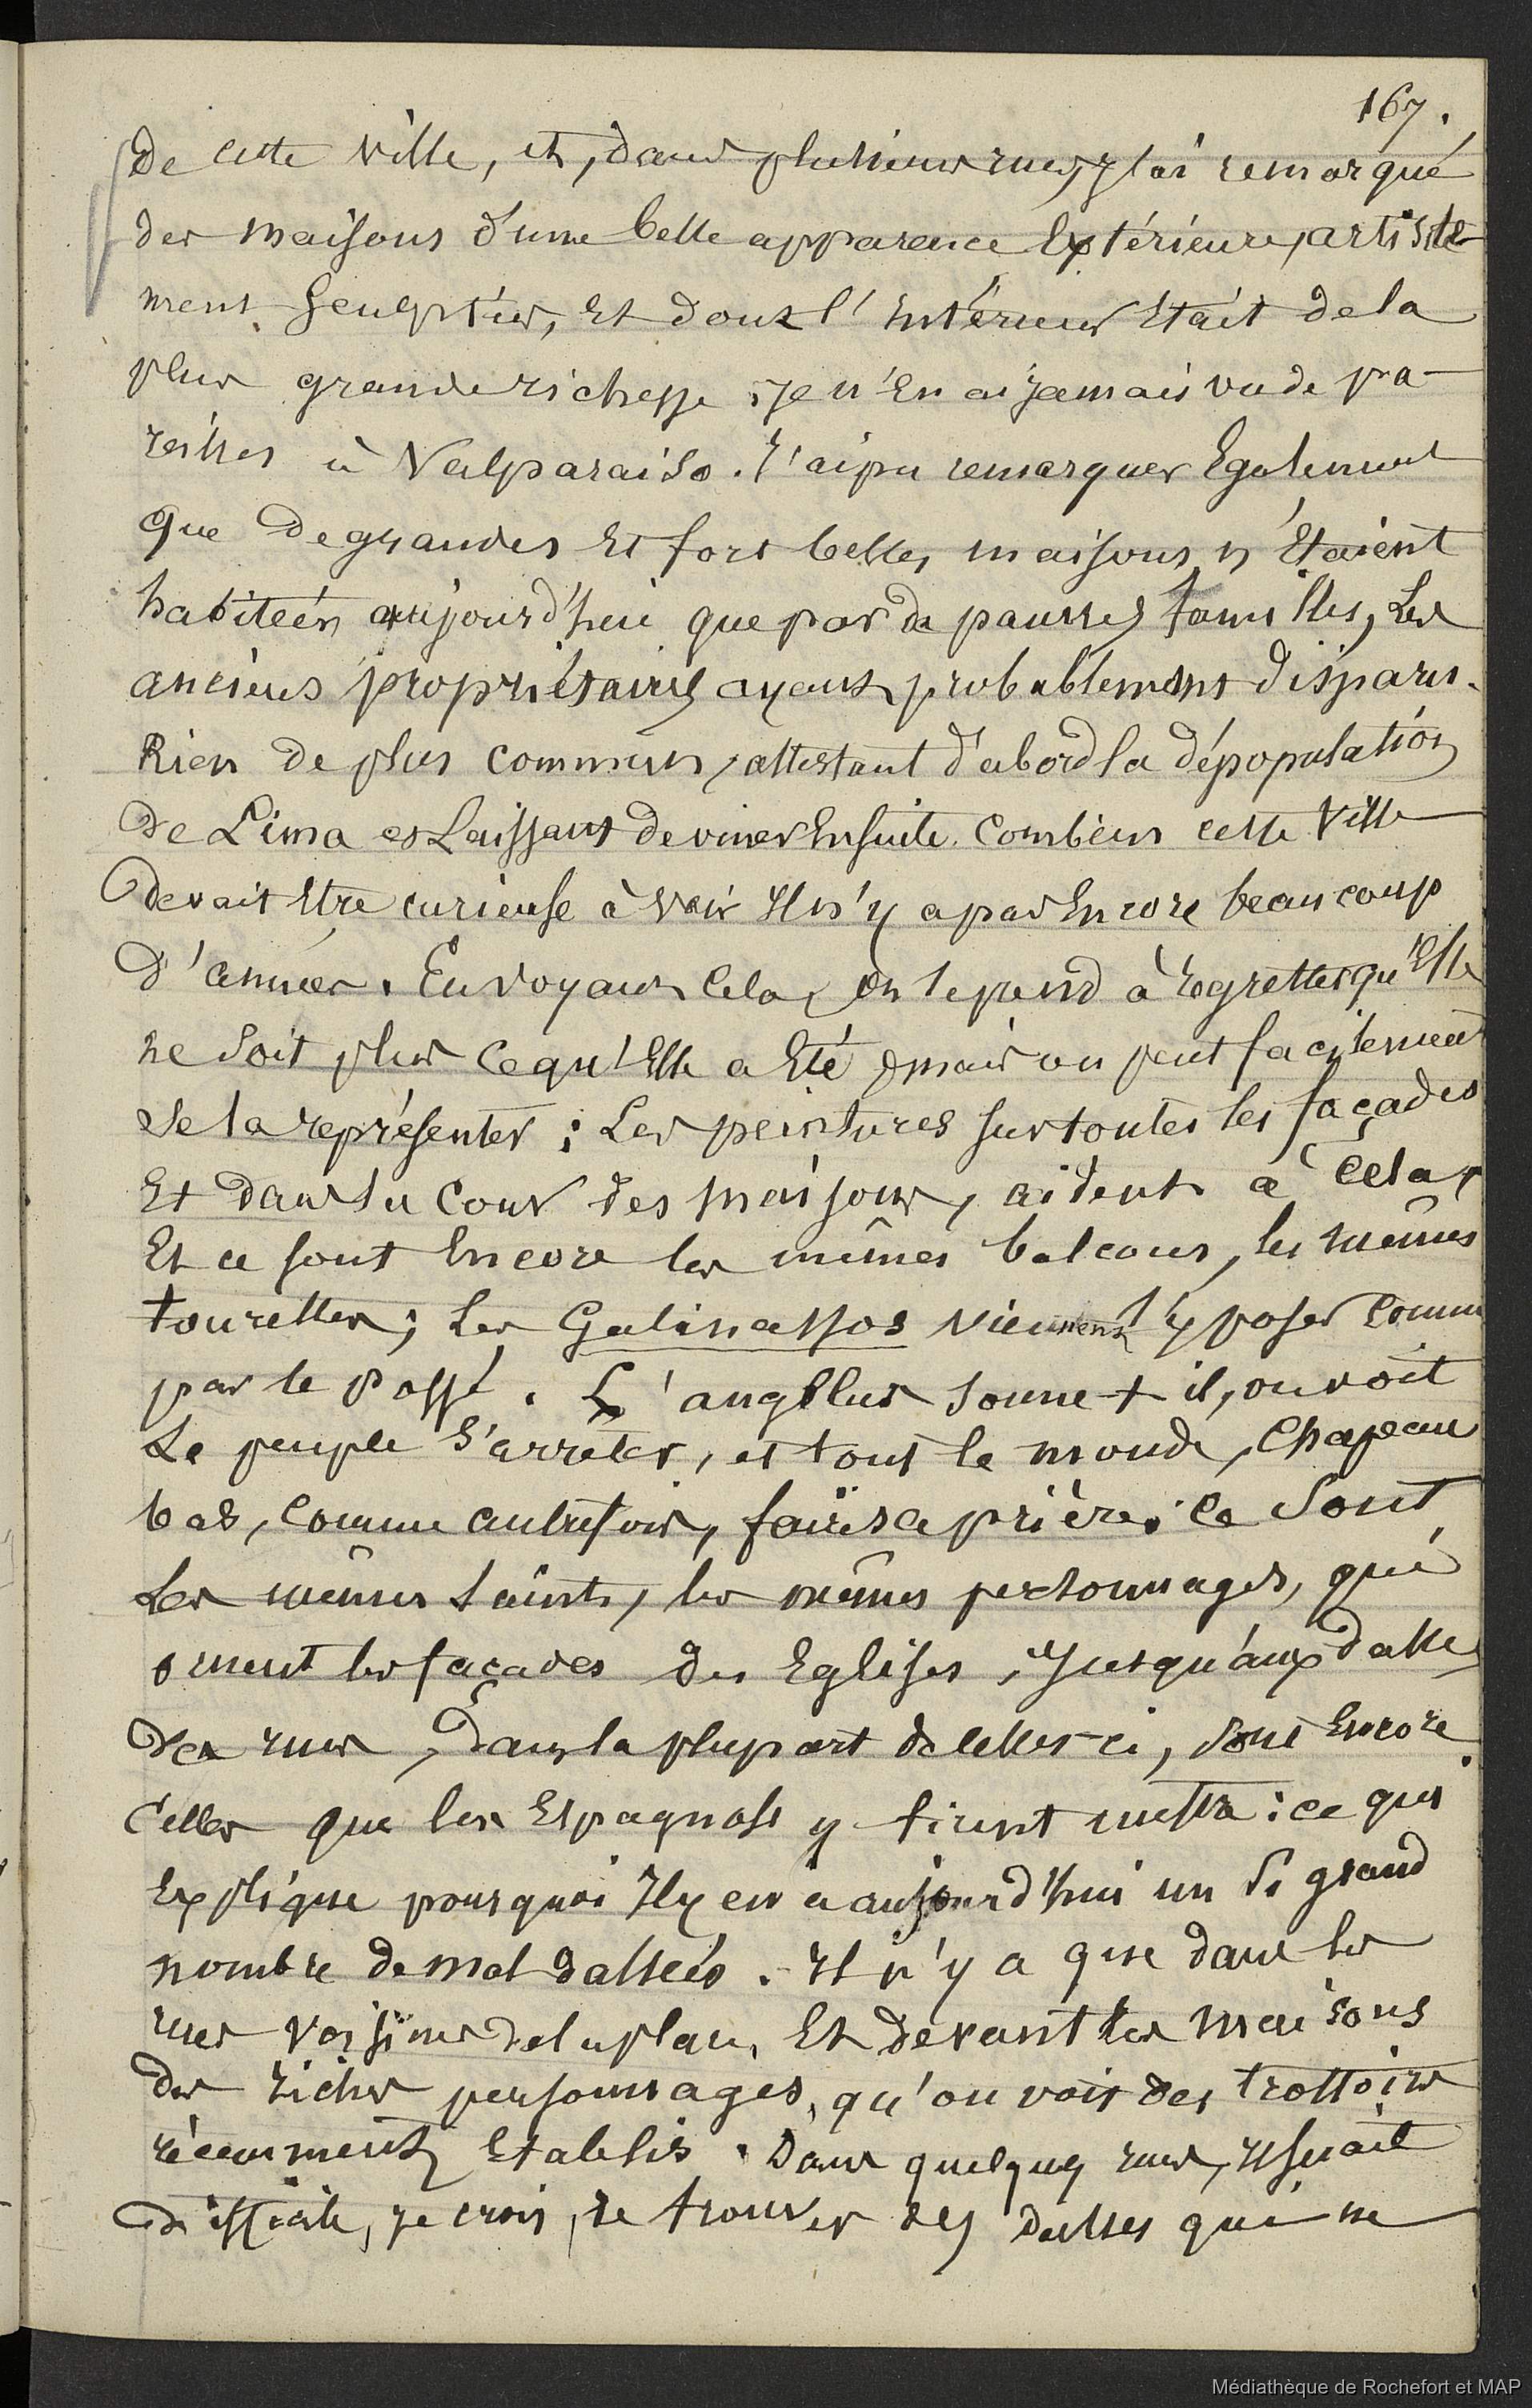 167.
de cette ville, et, dans plusieurs rues, j'ai remarqué
des maisons d'une belle apparence Extérieure, artiste-
ment Sculptées, Et dont l'intérieur Etait de la
plus grande richesse. je n'En ai jamais vu de pa-
reilles à Valparaiso. J'ai pu remarquer Egalement
que de grandes Et fort belles maisons n'Etaient
habitées aujourd'hui que par de pauvres familles, Les
anciens propriétaires ayant probablement disparu.
Rien de plus commun, attestant d'abord la dépopulation
de Lima et Laissant deviner Ensuite combien cette Ville
devait Etre curieuse à voir Il n'y a pas Encore beaucoup
d'années. En voyant Cela, on se prend à regretter qu'Elle
ne soit plus ce qu'Elle a Eté, mais on peut facilement
se la représenter; Les peintures sur toutes les façades
Et dans la cour des maisons, aident à Cela,
Et ce sont Encore les mêmes balcons, les mêmes
tourelles; Les Galinassos viennent s'y poser comme
par le passé. L'angélus sonne-t-il, on voit
Le peuple s'arrêter, et tout le monde, Chapeau
bas, comme autrefois, faire sa prière: Ce Sont
Les mêmes Saints, les mêmes personnages, qui
ornent les façades des Eglises, Jusqu'aux dalles
des rues, Dans la plupart de celles-ci, sont Encore
Celles que les Espagnols y firent mettre: ce qui
Explique pourquoi Il y en a aujourd'hui un Si grand
nombre de mal dallées. Il n'y a que dans les
rues Voisines de la place, Et devant les maisons
des riches personnages, qu'on voit des trottoirs
récemment Etablis. Dans quelques rues, Il serait
difficile, je crois, de trouver des dalles qui ne
Médiathèque de Rochefort et MAP